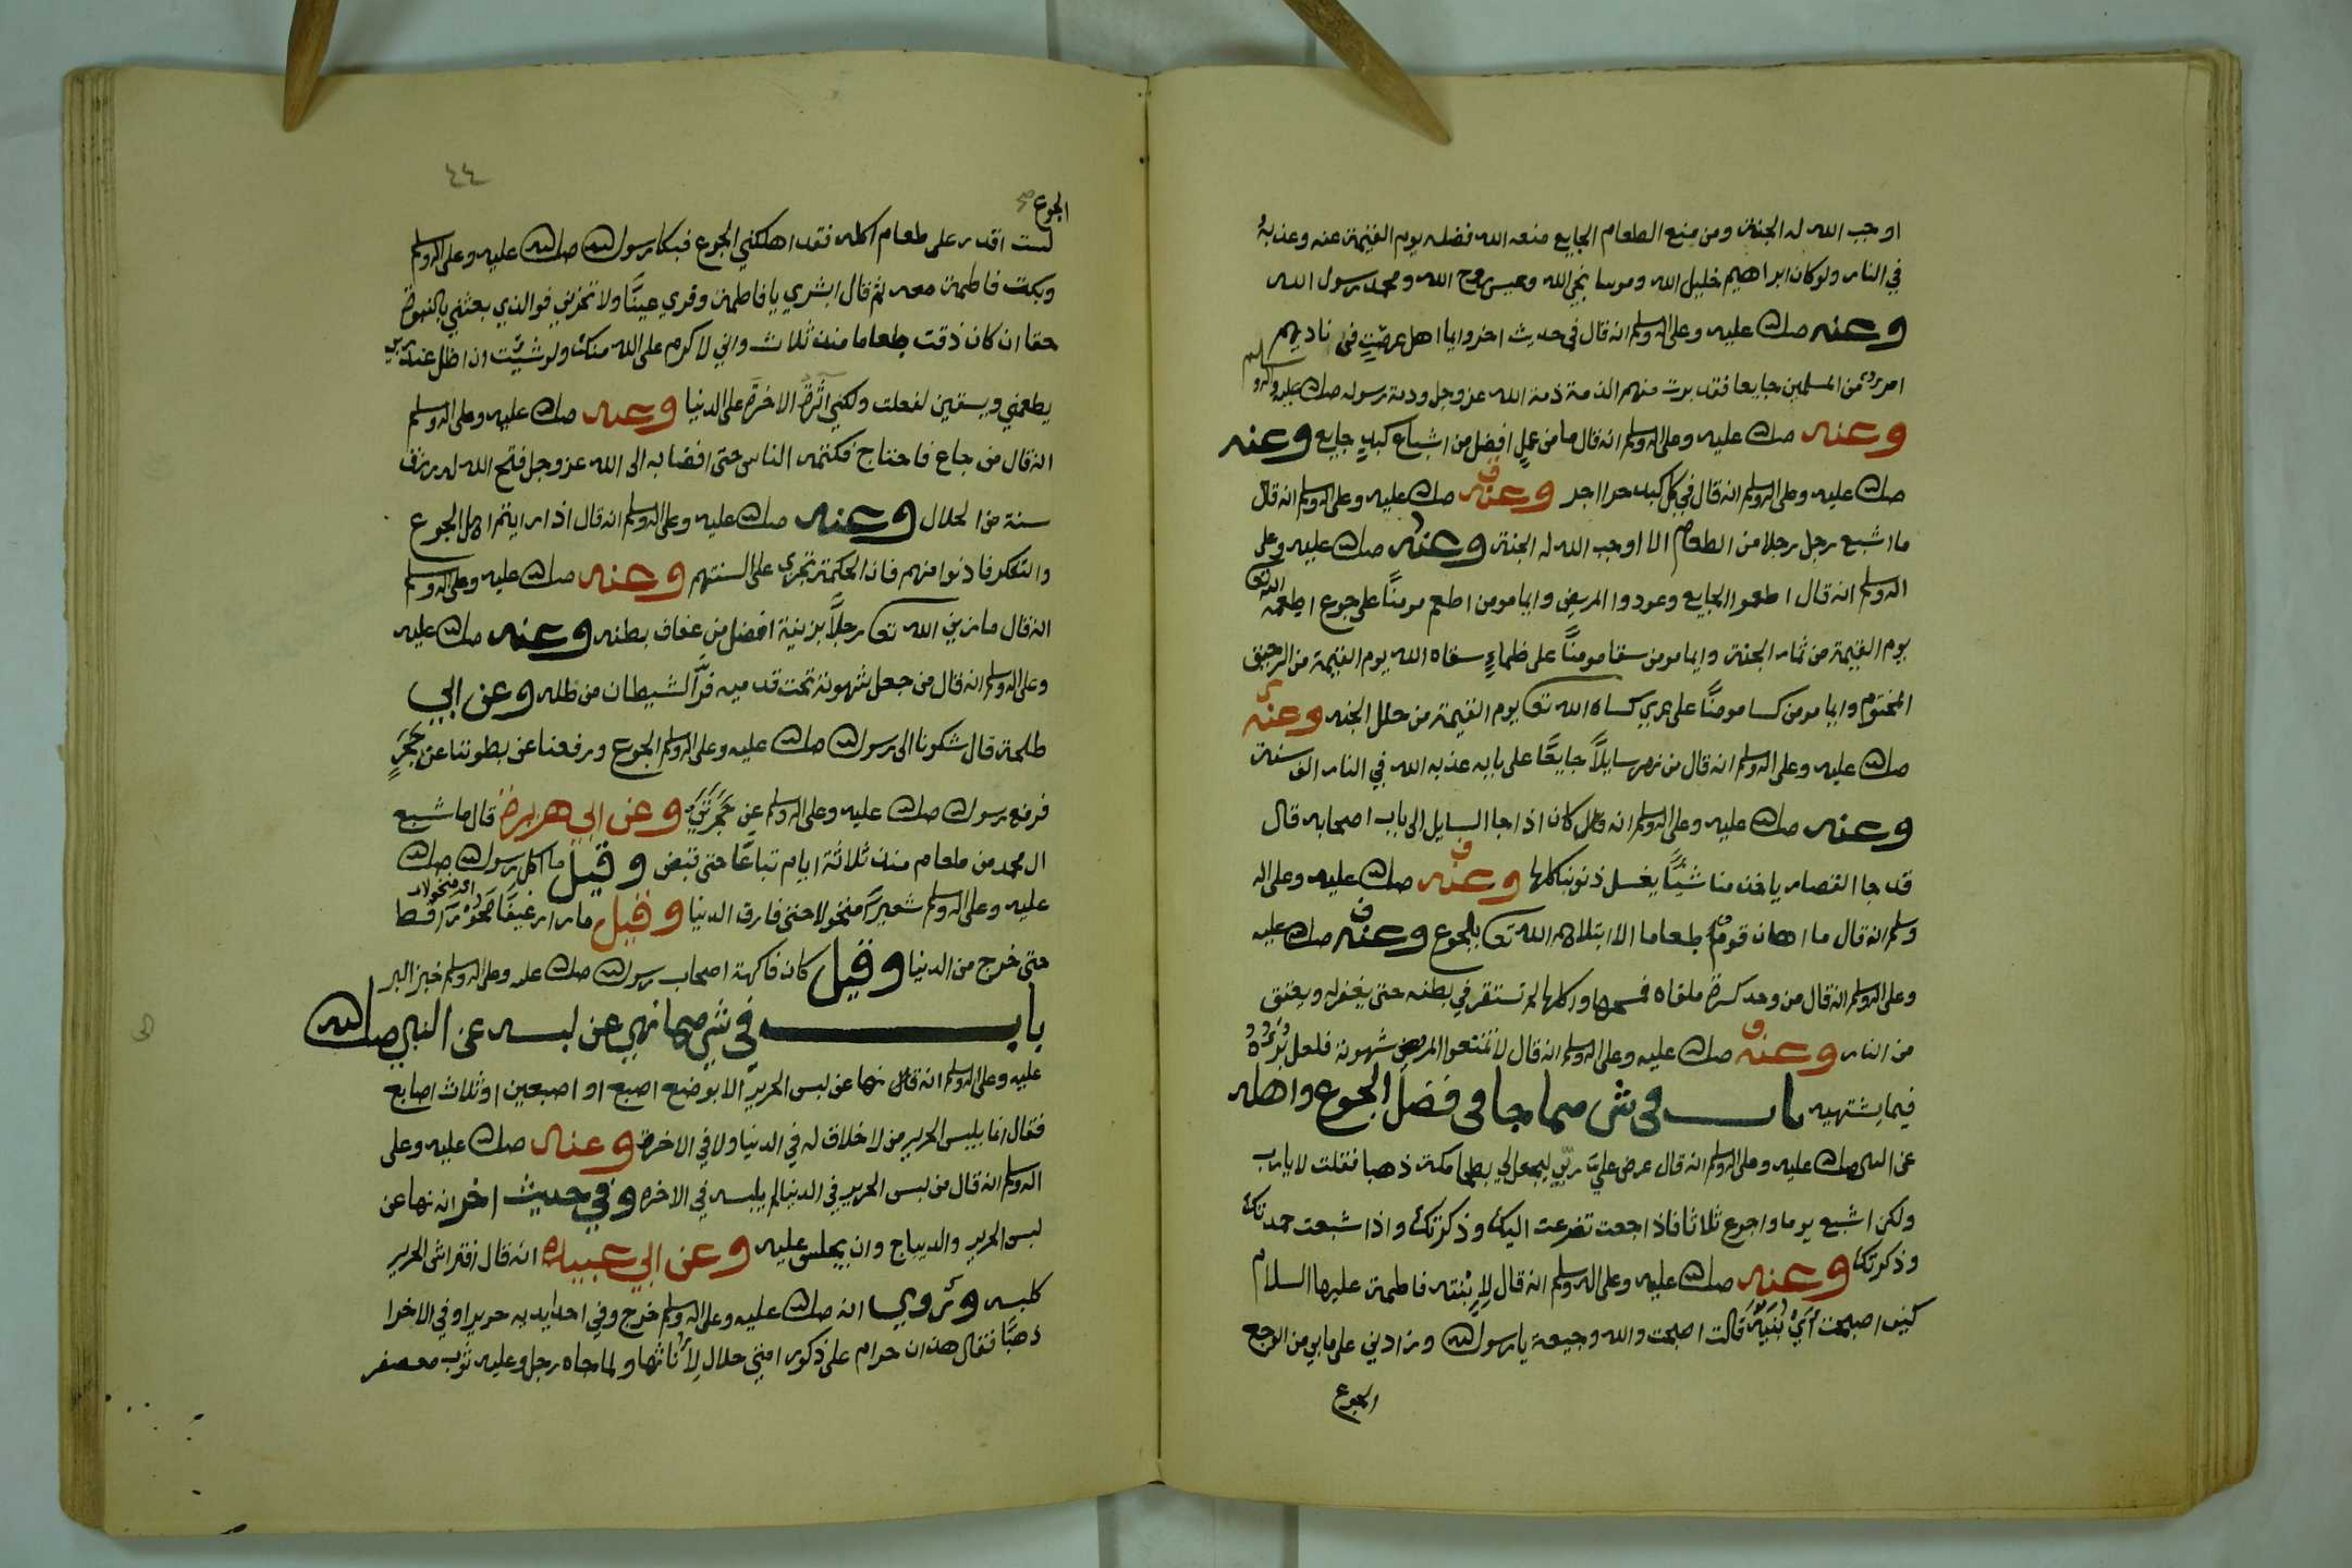 اوجب الله له الجنة ومن منع الطعام الجايع منعه الله فضله يوم القيمة عنه وعذبه
في النار ولو كان ابراهيم خليل الله وموسا نجي الله وعيس روح الله ومحمد رسول الله
وعنه صلى الله عليه وعلى اله وسلم انه قال في حديث اخر وايما اهل عرصت في ناديهم
امرء من المسلمين جايعا فقد برت منهم الذمة ذمة الله عز وجل وذمة رسوله صلى الله عليه واله وسلم
وعنه صلى الله عليه وعلى اله وسلم انه قال ما من عمل افضل من اشباع كبد جايع وعنه
صلى الله عليه وعلى اله وسلم انه قال في كل كبد حرا اجر وعنه صلى الله عليه وعلى اله وسلم انه قال
ما اشبع رجل رجلا من الطعام الا اوجب الله له الجنة وعنه صلى الله عليه وعلى
اله وسلم انه قال اطعموا الجايع وعودوا المريض وايما مومن اطعم مومنًا على جوع اطعمه الله تعا
يوم القيمة من ثمار الجنة وايما مومن سقا مومنًا على ظماءٍ سقاه الله يوم القيمة من الرحيق
المختوم وايما مومن كسا مومنًا على عري كساه الله تعا يوم القيمة من حلل الجنه وعنه
صلى الله عليه وعلى اله وسلم انه قال من نهر سايلًا جايعًا على بابه عذبه الله في النار الف سنة
وعنه صلى الله عليه وعلى اله وسلم انه قال كان اذا جا السايل الى باب اصحابه قال
قد جا القصار ياخذ منا شيًا يغسل ذنوبنا كلها وعنه صلى الله عليه وعلى اله
وسلم انه قال ما اهان قوم طعاما الا ابتلاهم الله تعا بالجوع وعنه صلى الله عليه
وعلى اله وسلم انه قال من وجد كسرة ملقاه فمسحها واكلها لم تستقر في بطنه حتى يغفر له ويعتق
من النار وعنه صلى الله عليه وعلى اله وسلم انه قال لا تمنعوا المريض شهوته فلعل برؤه
فيما يشتهيه باب في شي مما جا في فضل الجوع واهله
عن النبي صلى الله عليه وعلى اله وسلم انه قال عرض عليّ ربي ليجعل لي بطحا مكة ذهبا فقلت لا يا رب
ولكن اشبع يوما واجوع ثلاثا فاذا جعت تضرعت اليك وذكرتك واذا شبعت حمدتك
وذكرتك وعنه صلى الله عليه وعلى اله وسلم انه قال لابنته فاطمة عليها السلام
كيف اصبحت اي بنية قالت اصبحت والله وجيعة يا رسول الله وزادني على ما بي من الوجع
الجوع
٤٤
الجوع
لست اقدر على طعام اكله فقد اهلكني الجوع فبكا رسول الله صلى الله عليه وعلى اله وسلم
وبكت فاطمة معه ثم قال ابشري يا فاطمة وقري عينًا ولا تحزني فوالذي بعثني بالنبوة
حقا ان كان ذقت طعاما منذ ثلاث واني لاكرم على الله منك ولو شيت ان اظل عند ربي
يطعمني ويسقين لفعلت ولكني اثرة الاخرة على الدنيا وعنه صلى الله عليه وعلى اله وسلم
انه قال من جاع فاحتاج فكتمه الناس حتى افضا به الى الله عز وجل فتح الله له رزق
سنة من الحلال وعنه صلى الله عليه وعلى اله وسلم انه قال اذا رايتم اهل الجوع
والتفكر فادنوا منهم فان الحكمة تجري على السنتهم وعنه صلى الله عليه وعلى اله وسلم
انه قال ما زين الله تعا رجلًا بزينة افضل من عفاف بطنه وعنه صلى الله عليه
وعلى اله وسلم انه قال من جعل شهوته تحت قدميه فرَّ الشيطان من ظله وعن ابي
طلحة قال شكونا الى رسول الله صلى الله عليه وعلى اله وسلم الجوع ورفعنا عن بطوننا عن حَجَرٍ
فرفع رسول الله صلى الله عليه وعلى اله وسلم عن حَجَرَيْن وعن ابي هريرة قال ما شبع
ال محمد من طعام منذ ثلاثة ايام تباعًا حتى قبض وقيل ما اكل رسول الله صلى الله
عليه وعلى اله وسلم شعيرًا منخولا حتى فارق الدنيا وقيل ما را رغيفًا محورا قط
حتى خرج من الدنيا وقيل كان فاكهة اصحاب رسول الله صلى الله عليه وعلى اله وسلم خبز البر
باب في شي مما نهي عن لبسه عن النبي صلى الله
عليه وعلى اله وسلم انه قال نها عن لبس الحرير الا بوضع اصبع او اصبعين او ثلاث اصابع
فقال انما يلبس الحرير من لا خلاق له في الدنيا ولا في الاخرة وعنه صلى الله عليه وعلى
اله وسلم انه قال من لبس الحرير في الدنيا لم يلبسه في الاخره وفي حديث اخر انه نها عن
لبس الحرير والديباج وان يجلس عليه وعن ابي عبيده انه قال افتراش الحرير
كلبسه وروي انه صلى الله عليه وعلى اله وسلم خرج وفي احد يديه حريرا وفي الاخرا
ذهبًا فقال هذان حرام على ذكور امتي حلال لاناثها ولما جاه رجل وعليه ثوب معصفر